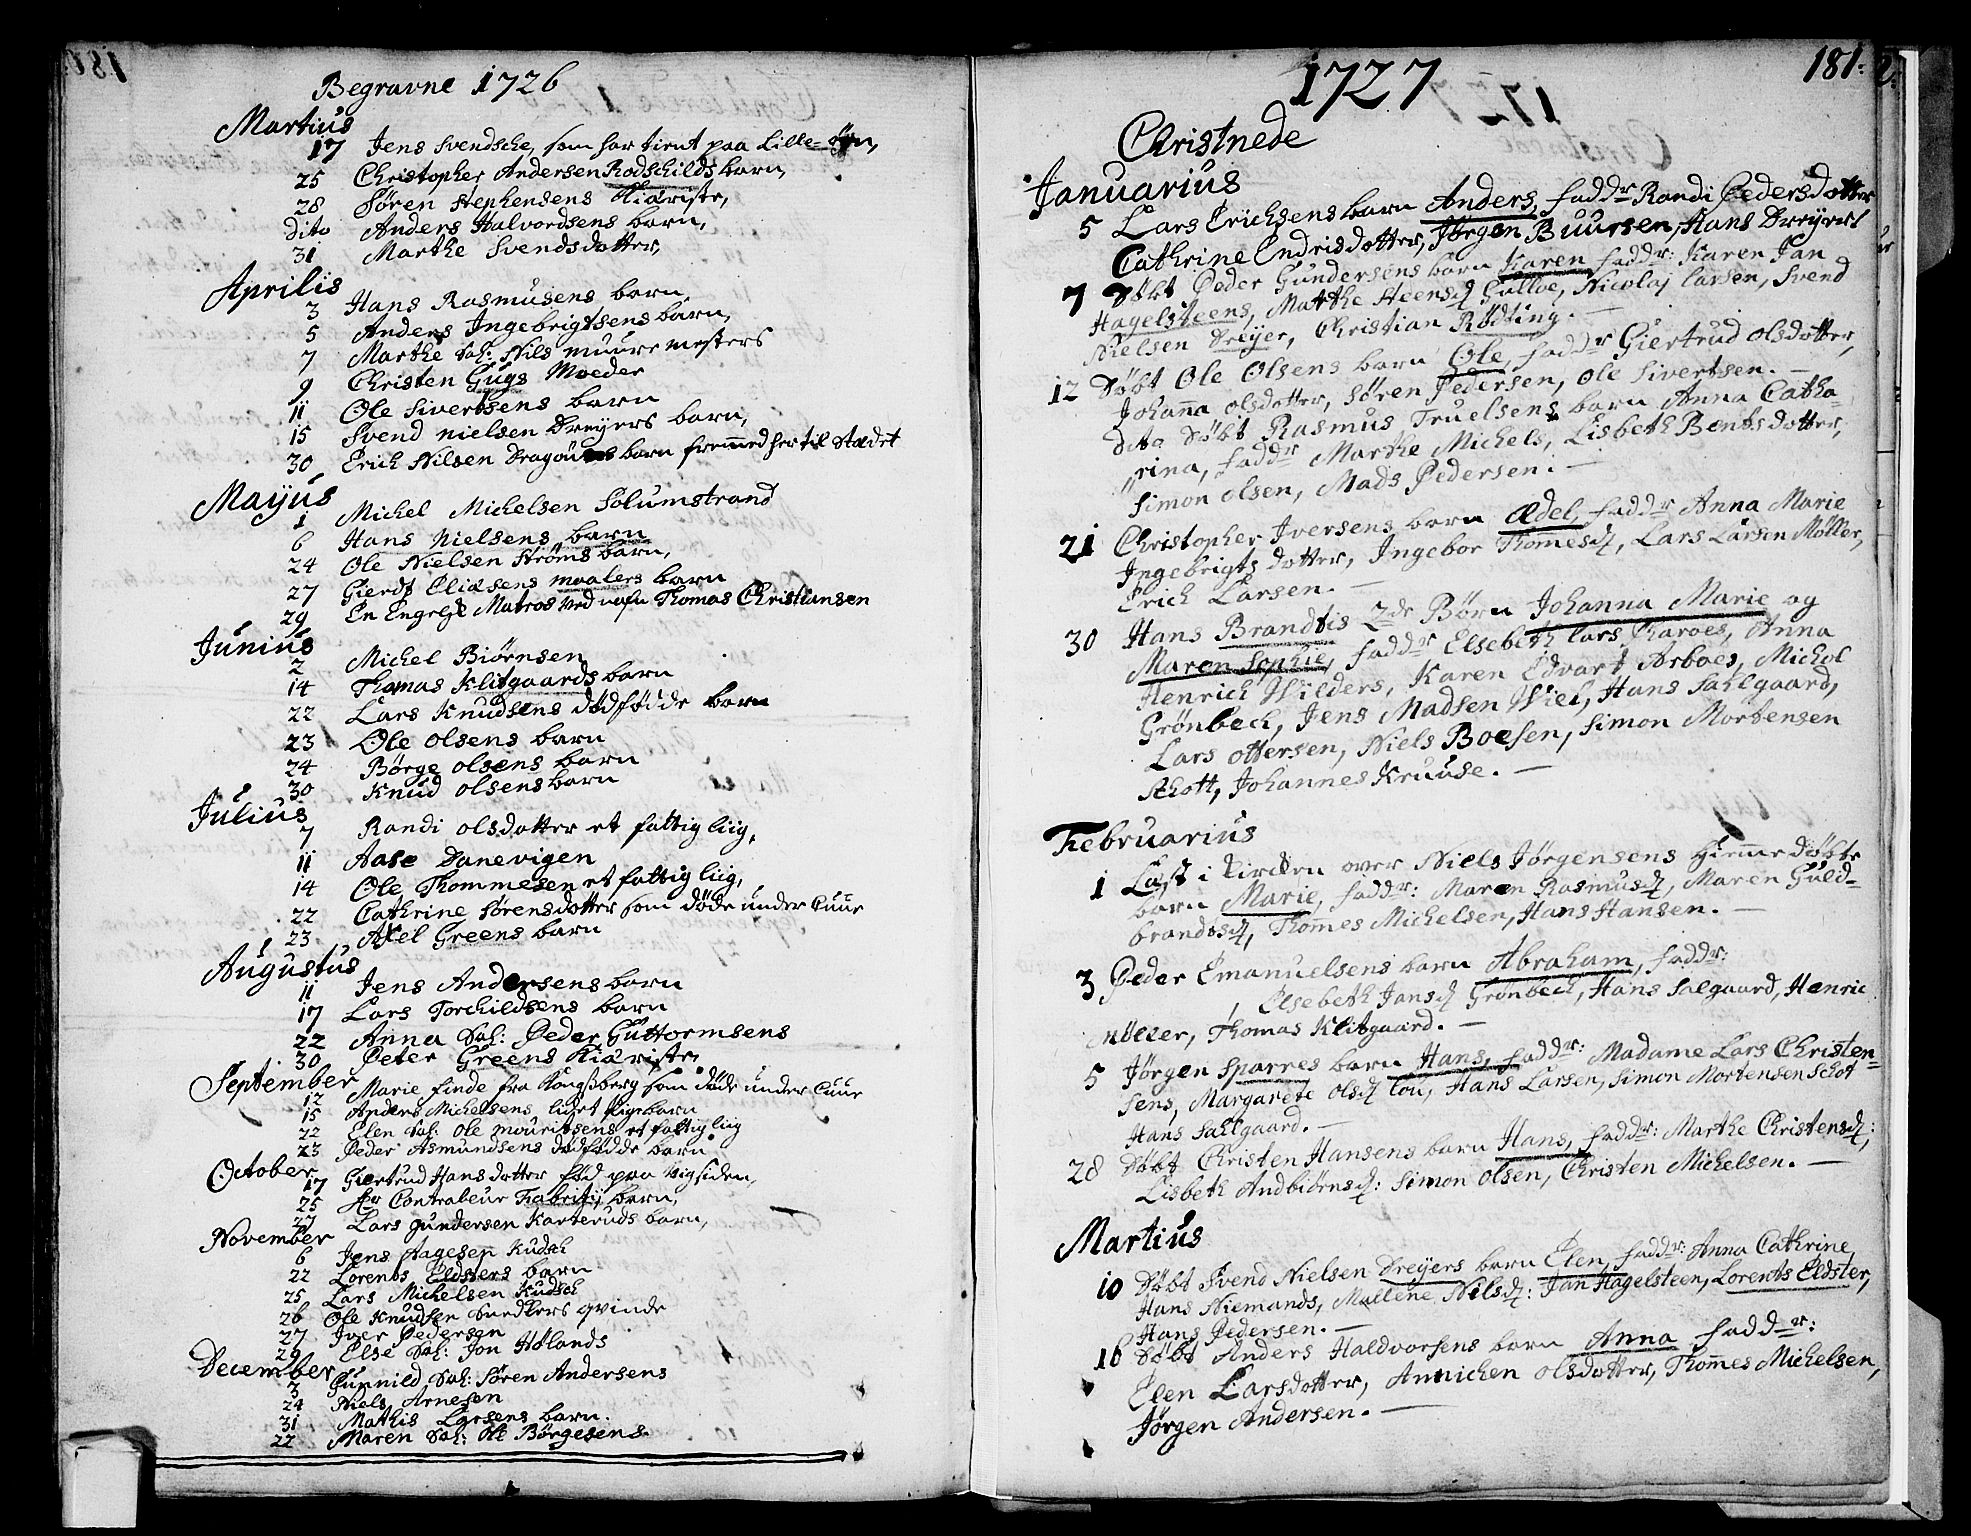 Begravne 1726
Martius
17 Jens Svendsche, som har tient paa Lille-Øen,
25 Christopher Andersen Rodschilds barn,
28 Søren Stephensens Kiæriste,
dito Anders Halvordsens barn,
31 Marthe Svendsdotter,
Aprilis
3 Hans Rasmusens barn
5 Anders Ingebrigtsens barn,
7 Marthe Sal: Nils muuremesters
9 Christen Gugs Moeder
11 Ole Sivertsens barn
15 Svend Nielsen Dreyers barn,
30 Erich Nilsen Dragouns barn fremmed her til Stædet
Mayus
1 Michel Michelsen Solumstrand
6 Hans Nielsens barn
24 Ole Nielsen Strøms barn,
27 Gierdt Eliæsens maalers barn
29 En Engelse Matros ved nafn Thomas Christiansen
Junius
2 Michel Biørnsen
14 Thomas Klitgaards barn
22 Lars Knudsens dødfødde barn
23 Ole Olsens barn
24 Børge Olsens barn
30 Knud Olsens barn
Julius
7 Randi Olsdotter et fattig liig,
11 Aase Danevigen
14 Ole Thommesen et fattig liig,
22 Cathrine Sørensdotter som døde under Cuur
23 Axel Greens barn
Augustus
11 Jens Andersens barn
17 Lars Torchildsens barn
22 Anna Sal: Peder Guttormsens
30 Peter Greens Kiæriste,
September
12 Marie Finde fra Kongsberg som døde under Cuur
15 Anders Michelsens lidet Pigebarn
22 Elen Sal: Ole Mouritsens et fattig liig
23 Peder Asmundsens dødfødde barn
October
17 Giertrud Hansdotter fød paa Vigsiden,
25 Hr Contraleur Fabritij barn,
27 Lars Gundersen Karteruds barn,
November
6 Jens Aagesen Kudsch
22 Lorents Eldsters barn
25 Lars Michelsen Kudsch
26 Ole Knudsen Snedkers qvinde
27 Iver Pedersen
29 Else Sal: Jon Hølands
December
3 Gunnild Sal: Søren Andersens
24 Niels Arnesen
31 Mathis Larsens barn.
22 Maren Sal: Ole Børgesens
1727
181:
Christnede
Januarius
5 Lars Erichsens barn Anders, faddr Randi Pedersdotter
Cathrine Endrisdotter, Jørgen Buursen, Hans Dreyer
7 Døbt Peder Gundersens barn Karen faddr: Karen Jan
Hagelsteens, Marthe Steensd Gulloe, Nicolaj Larsen, Svend
Nielsen Dreyer, Christian Rødting. —
12 Døbt Ole Olsens barn Ole, faddr Giertrud Olsdotter,
Johanna Olsdotter, Søren Pedersen, Ole Sivertsen. —
dito Døbt Rasmus Truelsens barn Anna Catha-
rina, faddr Marthe Michels, Lisbeth Bentsdotter,
Simon Olsen, Mads Pedersen: —
21 Christopher Iversens barn Ædel, faddr Anna Marie
Ingebrigtsdotter, Ingebor Thommesd, Lars Larsen Møller,
Erich Larsen. —
30 Hans Brandtis 2de Børn Johanna Marie og
Maren Sophie, faddr Elsebeth Lars Charoes, Anna
Henrich Wilders, Karen Edvart Arboes, Michel
Grønbech, Jens Madsen Wiel, Hans Sahlgaard,
Lars Ottersen, Niels Boesen, Simon Mortensen
Schott, Johannes Kruuse. —
Februarius
1 Læst i kircken over Niels Jørgensens hiemmedøbte
barn Marie, faddr: Maren Rasmusd, Maren Guld-
brandsd, Thommes Michelsen, Hans Hansen. —
3 Peder Emanuelsens barn Abraham, faddr:
Elsebeth Jansd Grønbech, Hans Salgaard, Henric
Møller, Thomas Klitgaard. —
5 Jørgen Sparres barn Hans, faddr: Madame Lars Christen-
sens, Margarete Olsd Lou, Hans Larsen, Simon Mortensen Schot
Hans Sahlgaard. —
28 Døbt Christen Hansens barn Hans, faddr: Marthe Christensd:
Lisbeth Andbiørnsd: Simon Olsen, Christen Michelsen. —
Martius
10 Døbt Svend Nielsen Dreyers barn Elen, faddr: Anna Cathrine
Hans Niemands, Mallene Nilsd: Jan Hagelsteen, Lorents Eldster,
Hans Pedersen. —
16 Døbt Anders Haldvorsens barn Anna faddr:
Elen Larsdotter, Annichen Olsdotter, Thommes Michelsen,
Jørgen Andersen. —